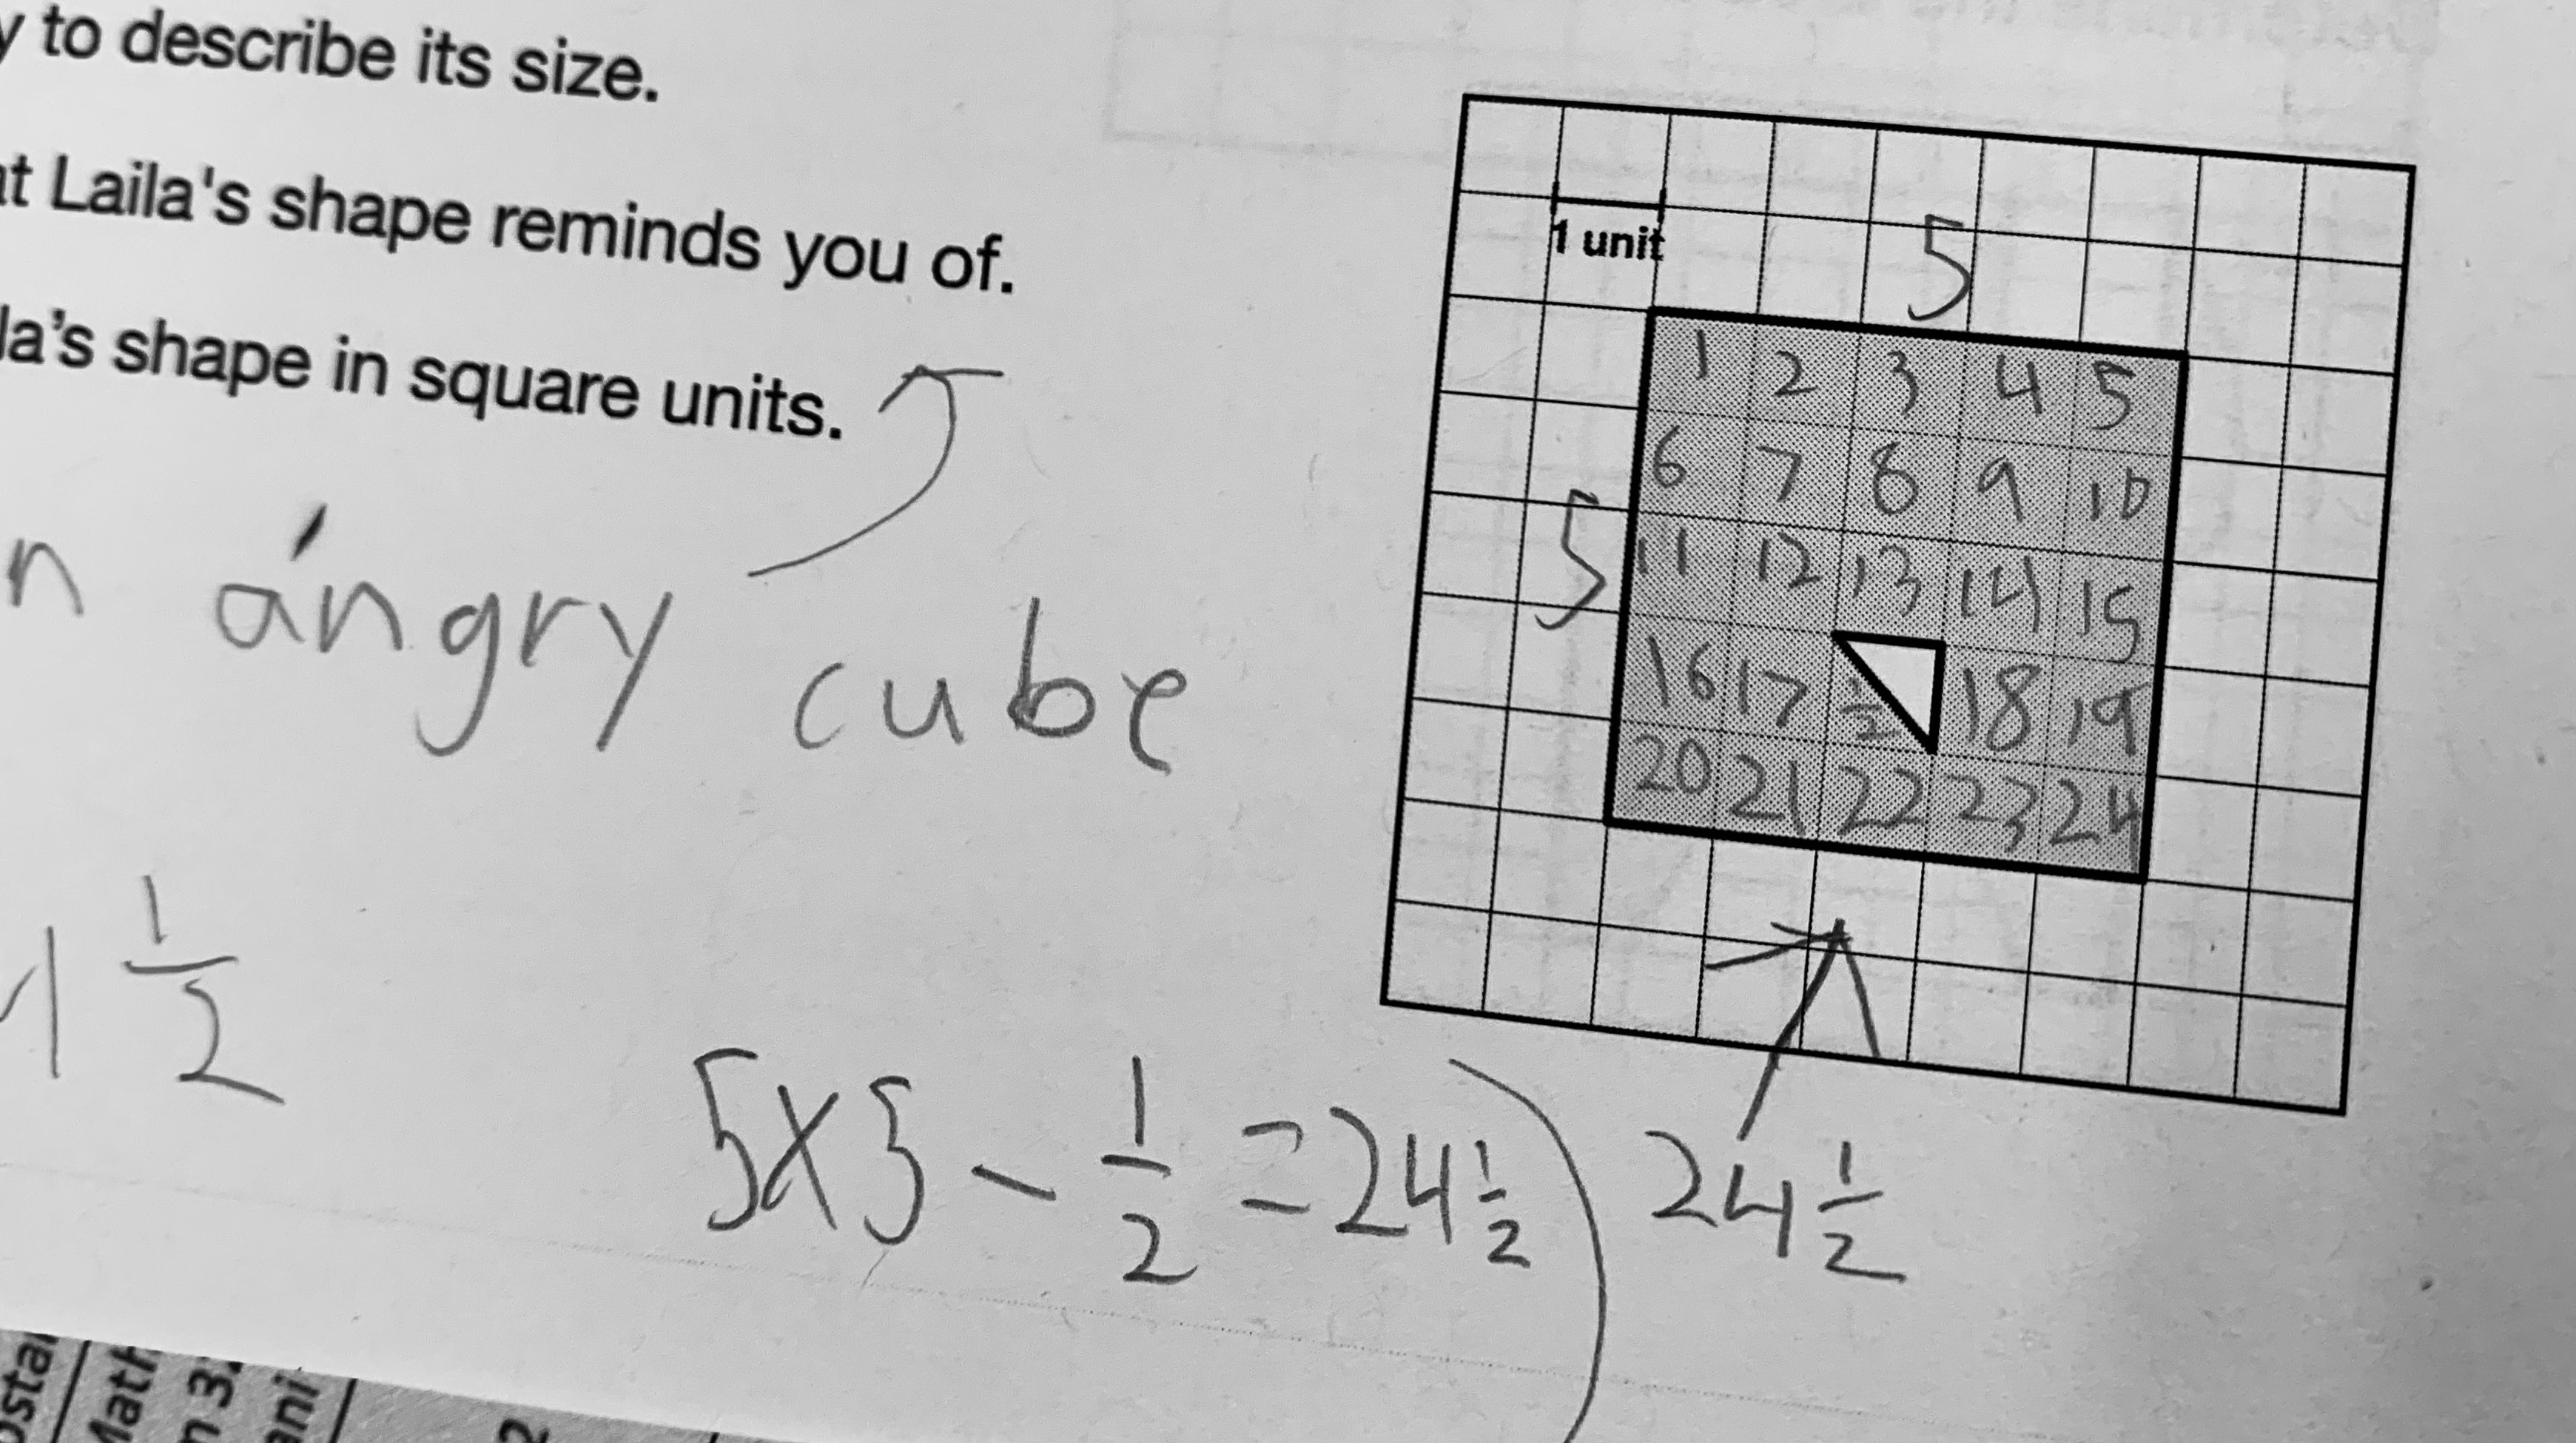 to describe its size.
Laila's shape reminds you of.
shape in square units.
angry cube
1 unit
5
5
1 2 3 4 5
6 7 8 9 10
11 12 13 14 15
16 17 1/2 18 19
20 21 22 23 24
1/2
5x5 - 1/2 = 24 1/2
24 1/2